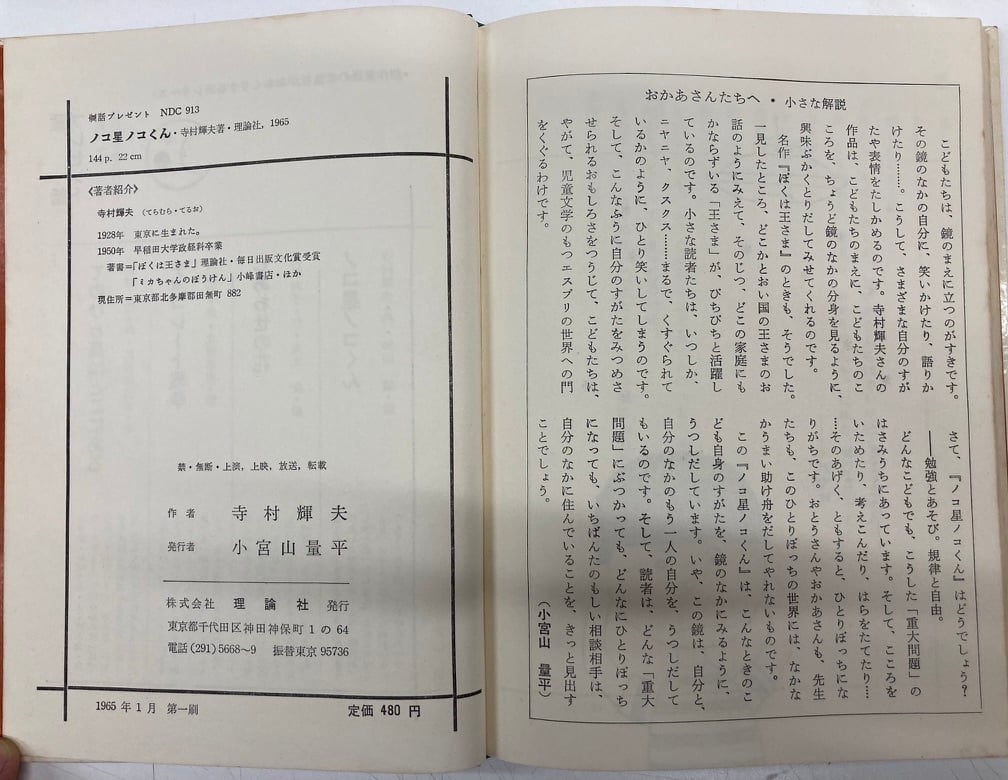 おかあさんたちへ・小さな解説
こどもたちは、鏡のまえに立つのがすきです。
その鏡のなかの自分に、笑いかけたり、語りか
けたり………。こうして、さまざまな自分のすが
たや表情をたしかめるのです。寺村輝夫さんの
作品は、こどもたちのまえに、こどもたちのこ
ころを、ちょうど鏡のなかの分身を見るように、
興味ぶかくとりだしてみせてくれるのです。
名作『ぼくは王さま』のときも、そうでした。
一見したところ、どこかとおい国の王さまのお
話のようにみえて、そのじつ、どこの家庭にも
かならずいる「王さま」が、ぴちぴちと活躍し
ているのです。小さな読者たちは、いつしか、
ニヤニヤ、クスクス……まるで、くすぐられて
いるかのように、ひとり笑いしてしまうのです。
そして、こんなふうに自分のすがたをみつめさ
せられるおもしろさをつうじて、こどもたちは、
やがて、児童文学のもつエスプリの世界への門
をくぐるわけです。
さて、『ノコ星ノコくん』はどうでしょう？
――勉強とあそび。規律と自由。
どんなこどもでも、こうした「重大問題」の
はさみうちにあっています。そして、こころを
いためたり、考えこんだり、はらをたてたり……
…そのあげく、ともすると、ひとりぼっちにな
りがちです。おとうさんやおかあさんも、先生
たちも、このひとりぼっちの世界には、なかな
かうまい助け舟をだしてやれないものです。
この『ノコ星ノコくん』は、こんなときのこ
ども自身のすがたを、鏡のなかにみるように、
うつしだしています。いや、この鏡は、自分と、
自分のなかのもう一人の自分を、うつしだして
もいるのです。そして、読者は、どんな「重大
問題」にぶつかっても、どんなにひとりぼっち
になっても、いちばんたのもしい相談相手は、
自分のなかに住んでいることを、きっと見出す
ことでしょう。
（小宮山 量平）
童話プレゼント NDC 913
ノコ星ノコくん・寺村輝夫著・理論社，1965
144 p. 22 cm
〈著者紹介〉
寺村輝夫 （てらむら・てるお）
1928年 東京に生まれた。
1950年 早稲田大学政経科卒業
著書＝「ぼくは王さま」理論社・毎日出版文化賞受賞
「ミカちゃんのぼうけん」小峰書店・ほか
現住所＝東京都北多摩郡田無町 882
禁・無断・上演，上映，放送，転載
作 者 寺 村 輝 夫
発行者 小 宮 山 量 平
株式会社 理 論 社 発行
東京都千代田区神田神保町 1 の 64
電話 (291) 5668～9 振替東京 95736
1965 年 1 月 第一刷
定価 480 円